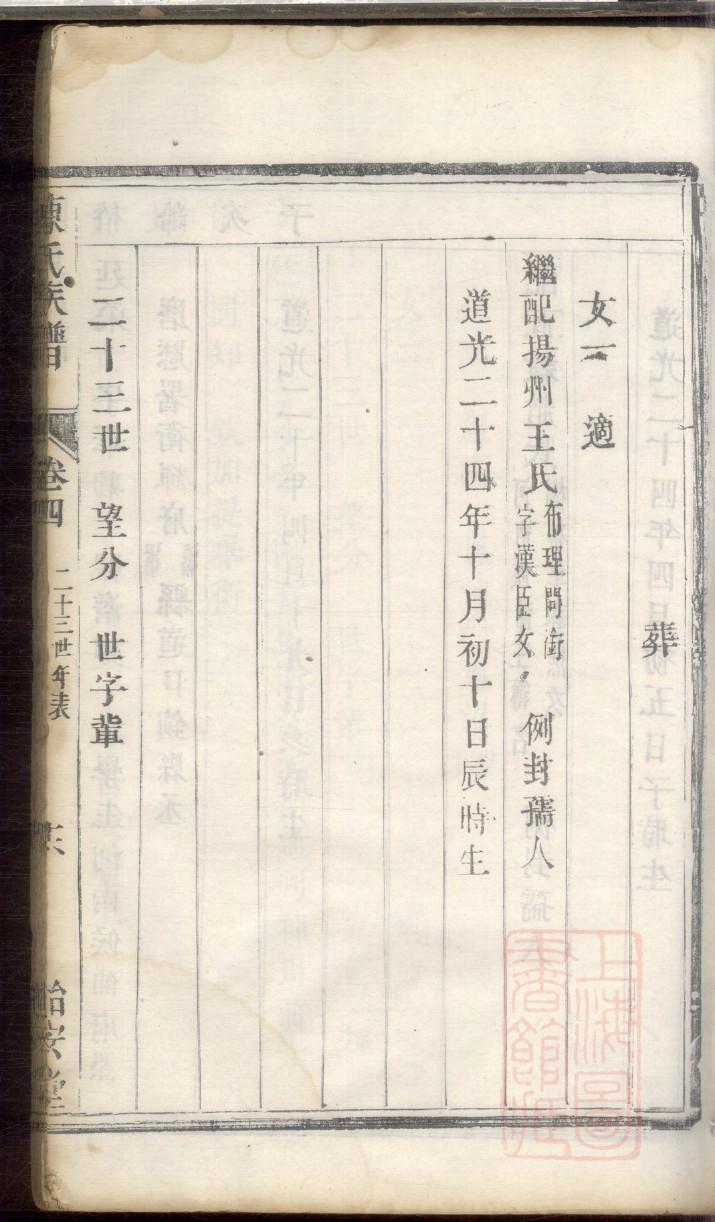 葬
女一 適
繼配揚州王氏布理問銜字漢臣女 例封孺人
道光二十四年十月初十日辰時生
二十三世 望分 世字輩
陳氏族譜 卷四 二十三世年表 怡安堂
上海圖書館藏